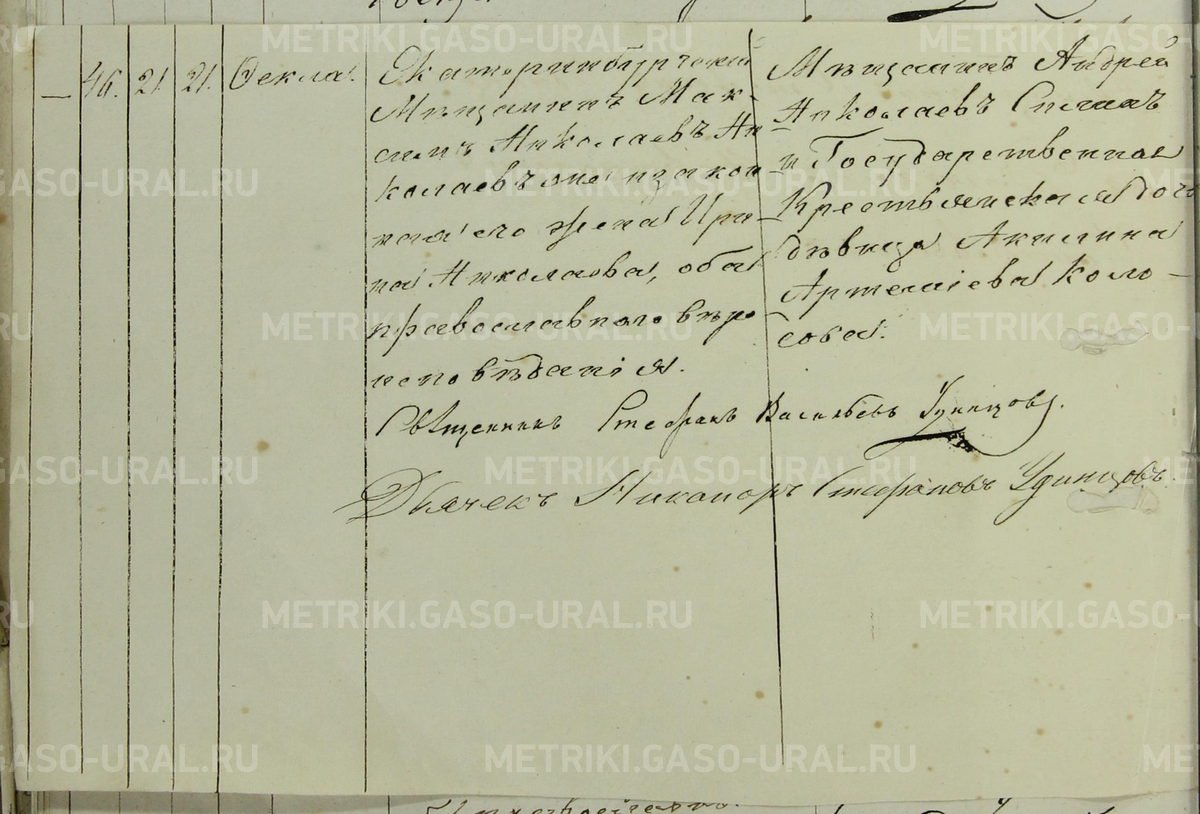 — 46. 21. 21. Ѳекла.
Екатеринбургскій
Мѣщанинъ Мак-
симъ Николаевъ Ни
колаевъ же и закон
ная его жена Ири-
на Николаева, оба
православнаго вѣро
исповѣданія.
Мѣщанинъ Андрей
Николаевъ
и Государственная
Крестьянская дочь
дѣвица Акилина
Артеміева Коло-
сова.
Священникъ Стефанъ Васильевъ Удинцовъ.
Дьячекъ Никаноръ Стефановъ Удинцовъ.
METRIKI.GASO-URAL.RU